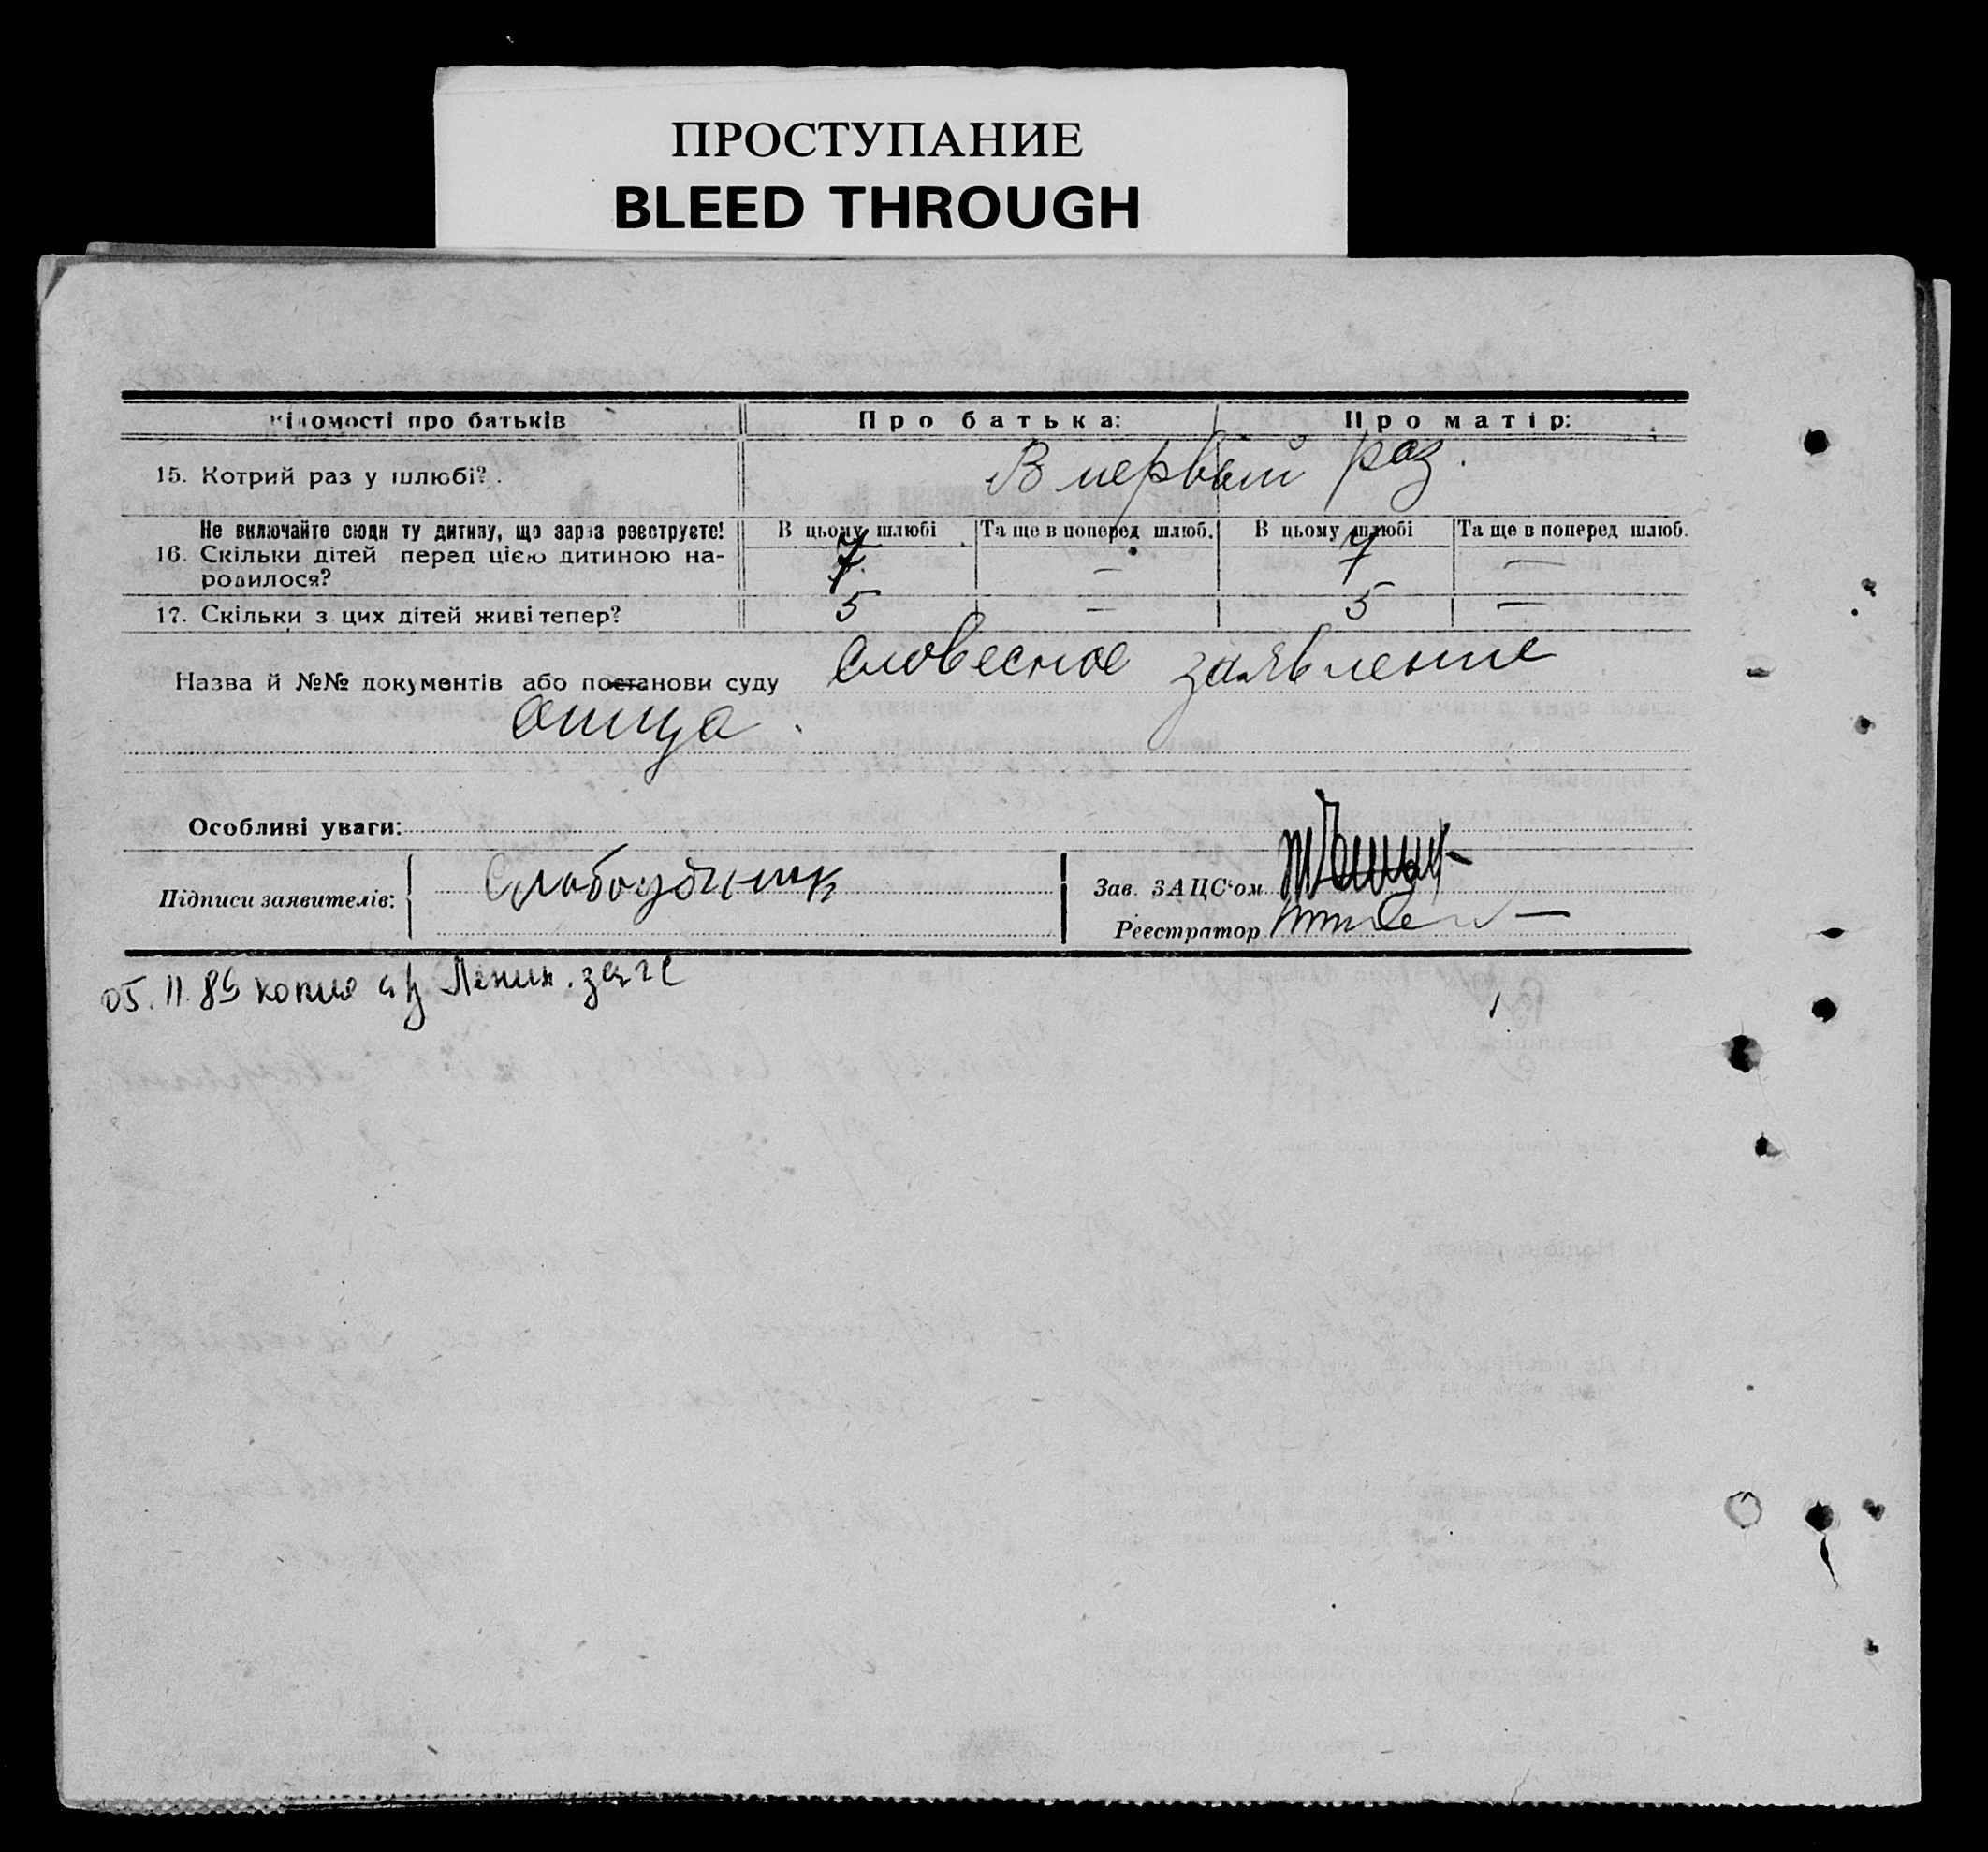 ПРОСТУПАНИЕ
BLEED THROUGH
Відомості про батьків Про батька: Про матір:
15. Котрий раз у шлюбі? В первый раз.
Не включайте сюди ту дитину, що зараз реєструєте! В цьому шлюбі Та ще в поперед шлюб. В цьому шлюбі Та ще в поперед шлюб.
16. Скільки дітей перед цією дитиною на- 7 — 7 —
родилося?
17. Скільки з цих дітей живі тепер? 5 — 5 —
Назва й №№ документів або постанови суду словесное заявление
отца.
Особливі уваги:
Підписи заявителів: Слабоудчик Зав. ЗАЦС'ом
Реєстратор
05.11.85 копия Ленин. загс